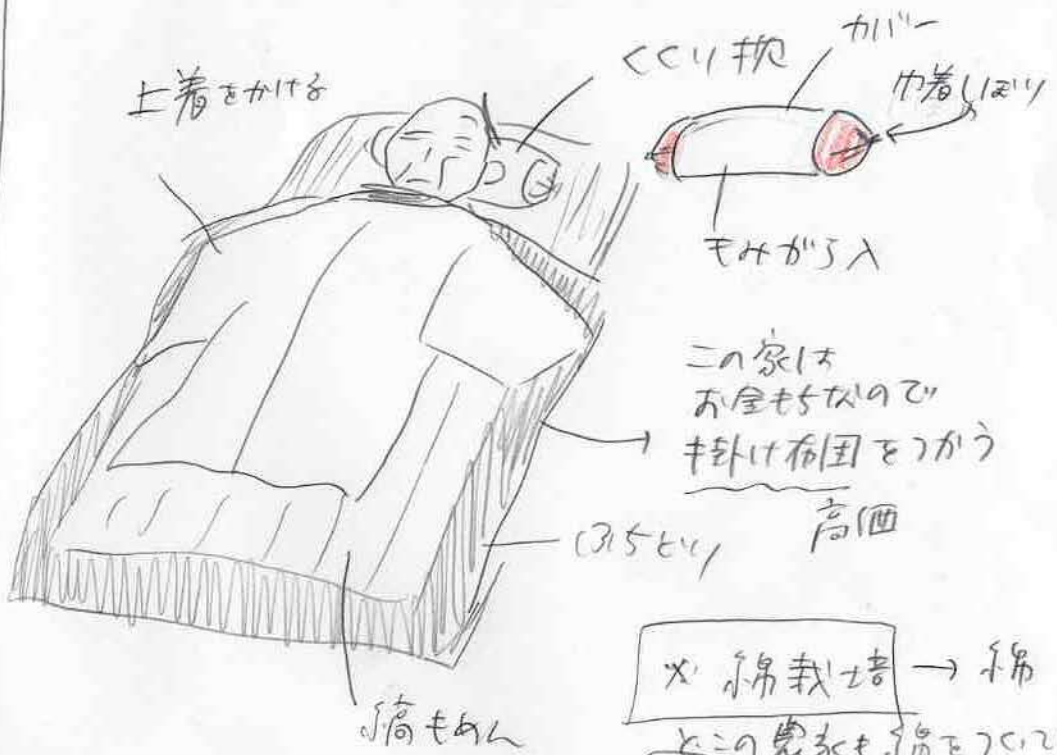 上着をかける
くくり枕
カバー
巾着しぼり
もみがら入
この家は
お金もちなので
掛け布団をつかう
高価
ふちどり
縞もめん
※ 綿栽培 → 綿
どこの農家も綿をつくって